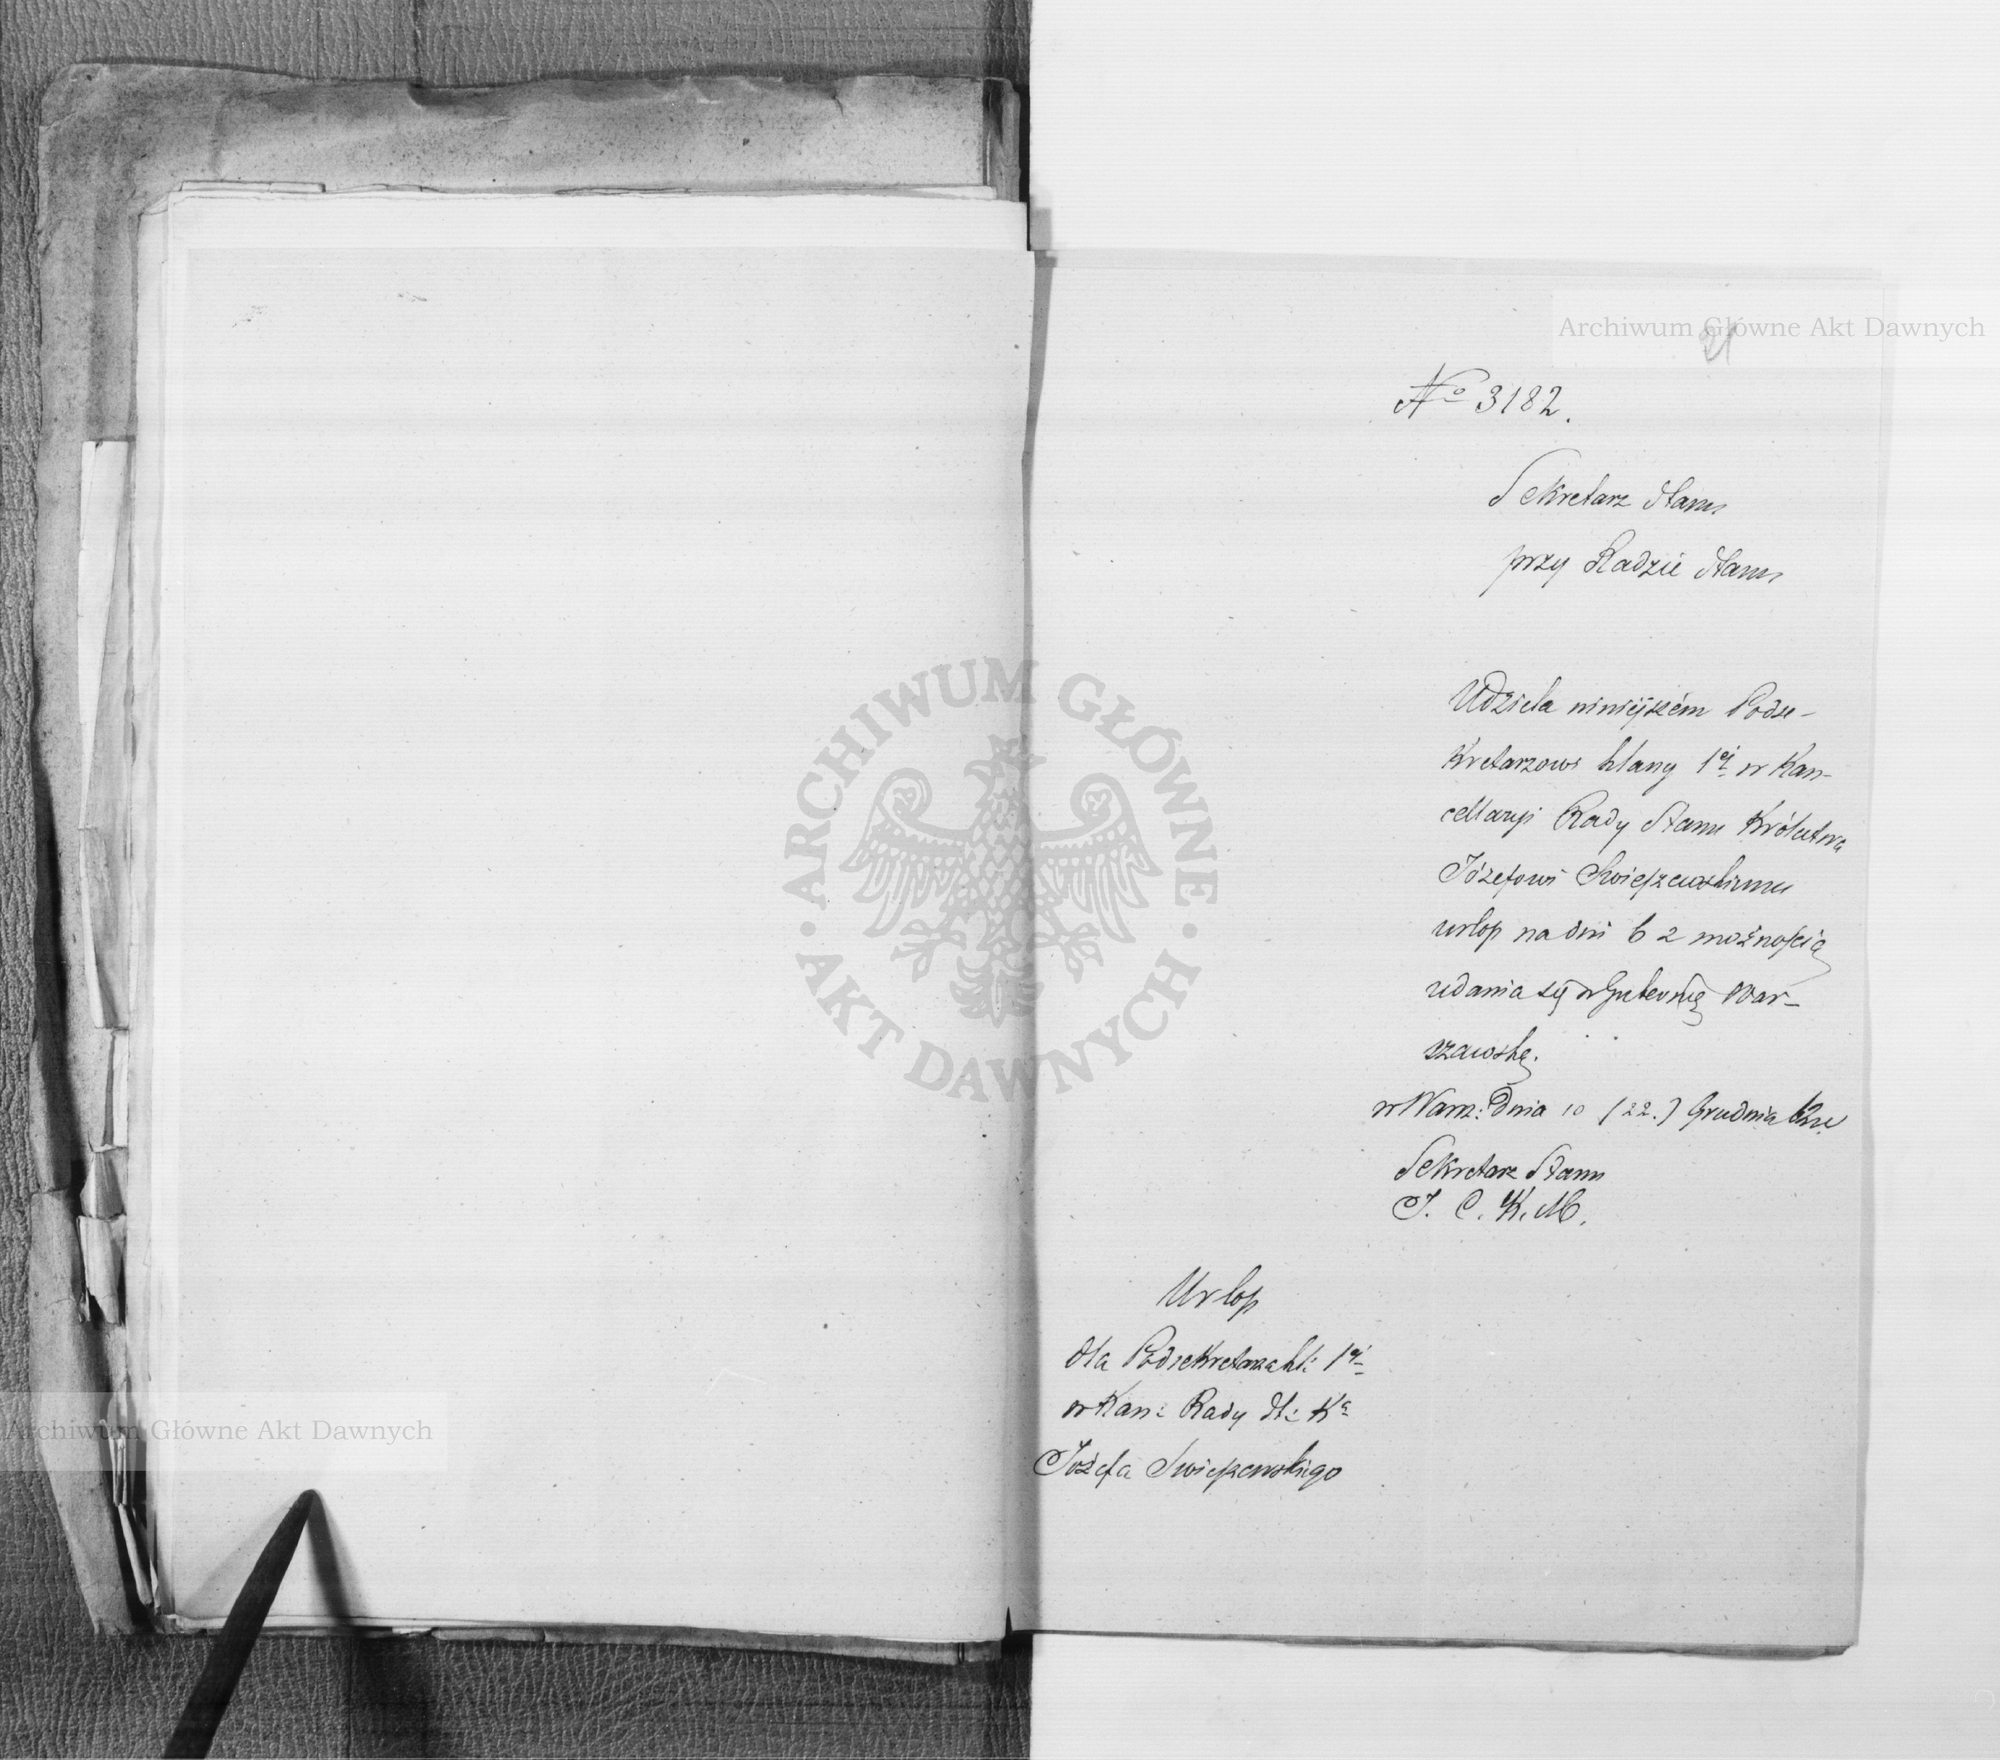 Archiwum Główne Akt Dawnych
21
No 3182.
Sekretarz Stanu
przy Radzie Stanu
Udziela niniejszém Podse-
kretarzowi klany 1éj w Kan-
cellaryi Rady Stanu Królestwa
Józefowi Swieszewskiemu
urlop na dni 6 z możnością
udania się w Gubernię War-
szawską.
w Warsz: dnia 10 (22.) Grudnia 62 r.
Sekretarz Stanu
J. C. K. M.
Urlop
dla Podsekretarza kl: 1éj
w Kan: Rady St: Ka
Józefa Swieszewskiego
ARCHIWUM GŁÓWNE · AKT DAWNYCH ·
Archiwum Główne Akt Dawnych